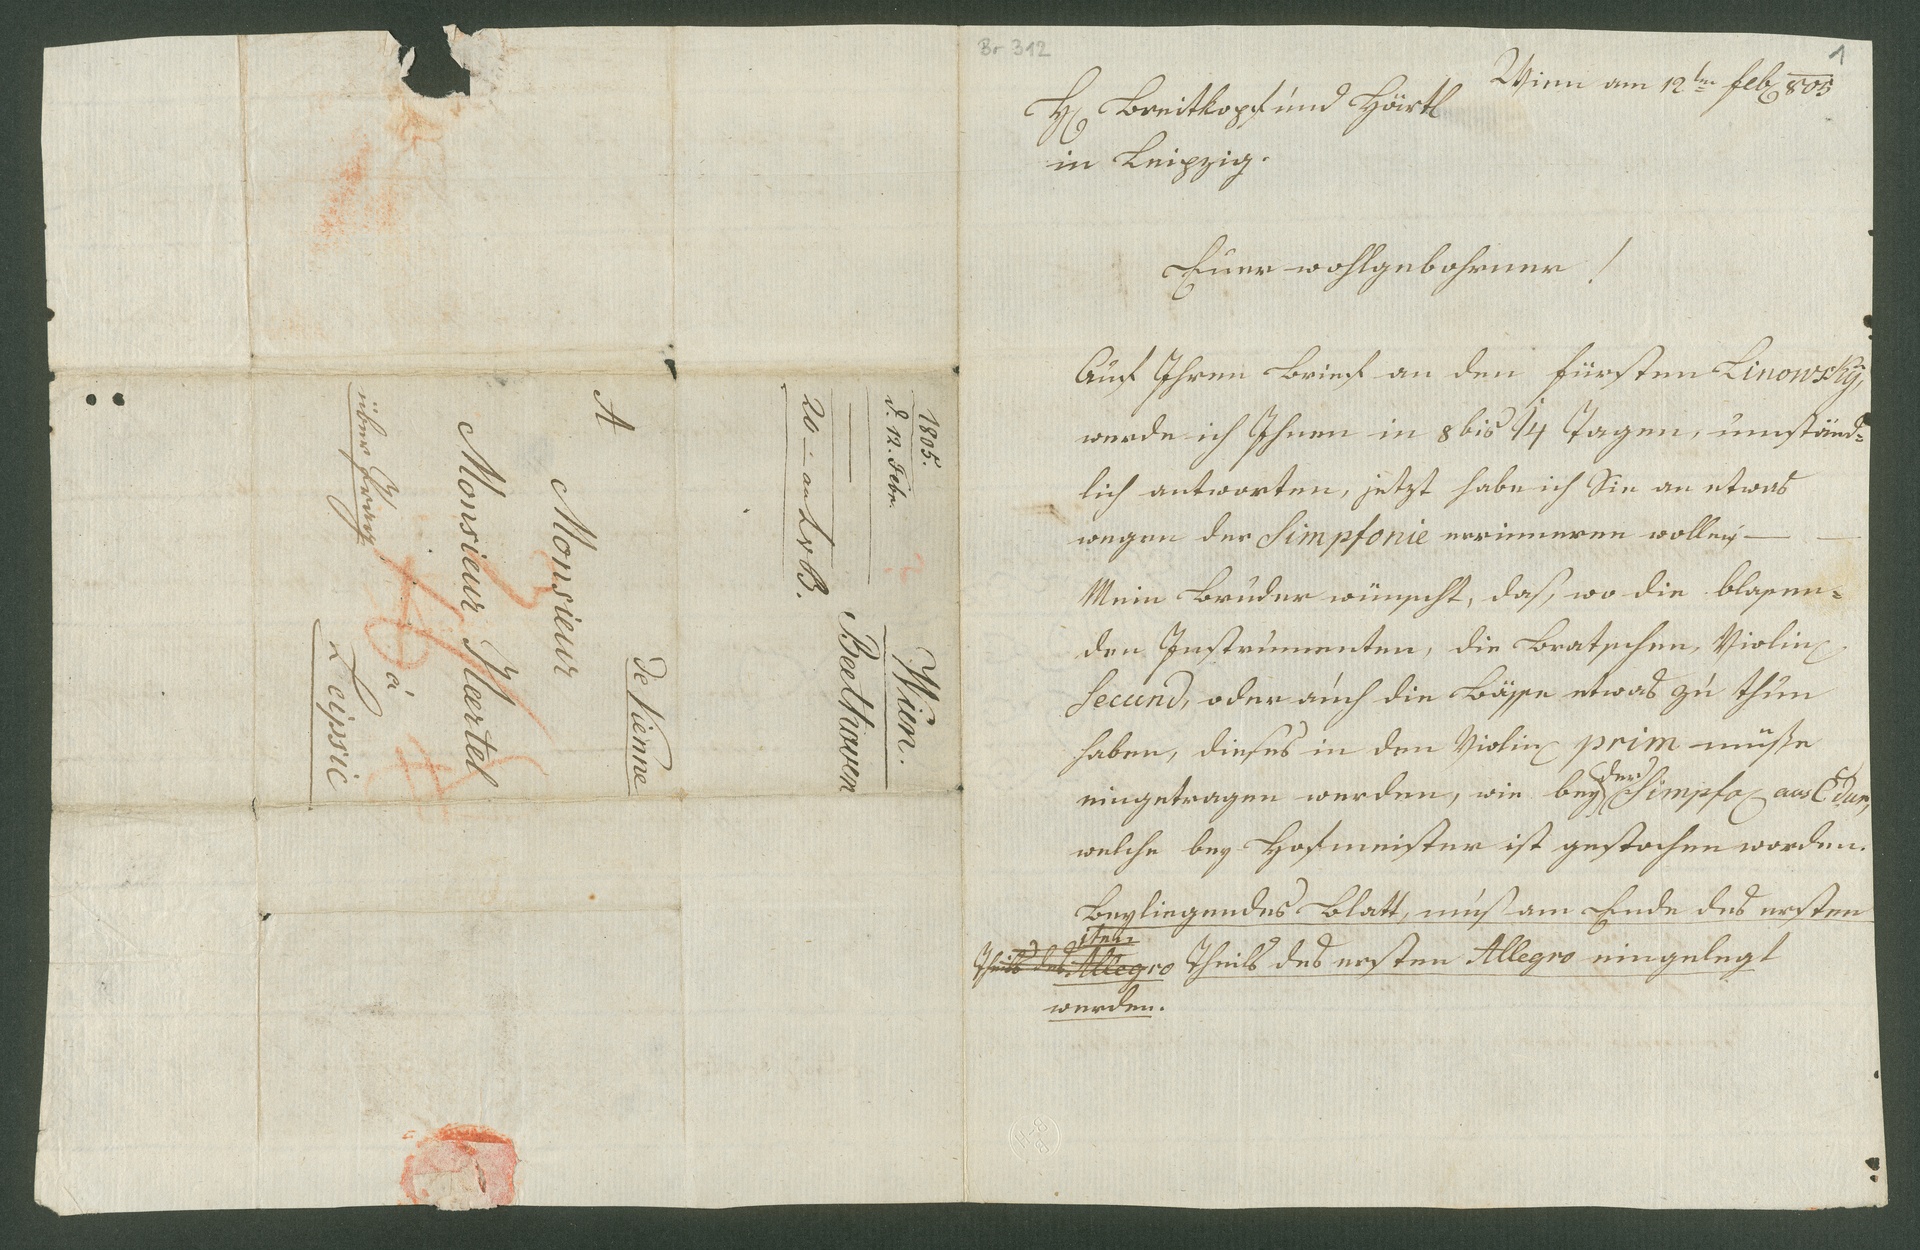 Br 312
1
Wien am 12ten feb 805
H. Breitkopf und Härtl
in Leipzig.
Euer wohlgebohrner !
Auf Ihren Brief an den fürsten Linowsky,
werde ich Ihnen in 8 bis 14 Tagen, umständ=
lich antworten, jetzt habe ich Sie an etwas
wegen der Simpfonie errinneren wollen —
Mein Bruder wünscht, daß, wo die blasen=
den Instrumenten, die Bratschen, Violin
Secund, oder auch die Bässe etwas zu thun
haben, dieses in den Violin prim müße
eingetragen werden, wie bey der Simpfo aus C dur,
welche bey Hofmeister ist gestochen worden.
Beyliegendes Blatt, muß am Ende des ersten
1ten
Theils des Allegro Theils des ersten Allegro eingelegt
werden.
1805.
d. 12. Febr.
Wien.
Beethoven
20 – an LvB.
De Vienne
A
Monsieur
Monsieur Haertel
à
Leipsic
über Prag